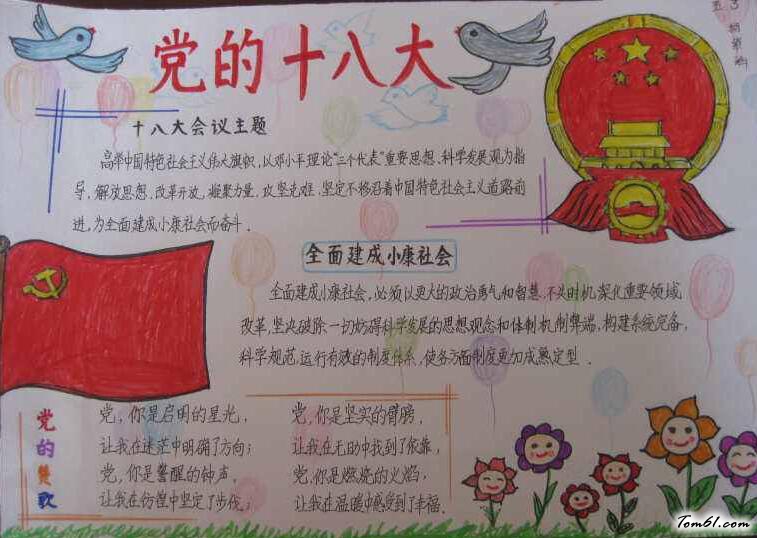 党的十八大
十八大会议主题
高举中国特色社会主义伟大旗帜，以邓小平理论“三个代表”重要思想、科学发展观为指
导，解放思想，改革开放，凝聚力量，攻坚克难，坚定不移沿着中国特色社会主义道路前
进，为全面建成小康社会而奋斗．
全面建成小康社会
全面建成小康社会，必须以更大的政治勇气和智慧，不失时机深化重要领域
改革，坚决破除一切妨碍科学发展的思想观念和体制机制弊端，构建系统完备，
科学规范，运行有效的制度体系，使各方面制度更加成熟定型．
党的赞歌
党，你是启明的星光，
让我在迷茫中明确了方向；
党，你是警醒的钟声，
让我在彷徨中坚定了步伐；
党，你是坚实的臂膀，
让我在无助中找到了依靠，
党，你是燃烧的火焰，
让我在温暖中感受到了幸福．
Tom61.com